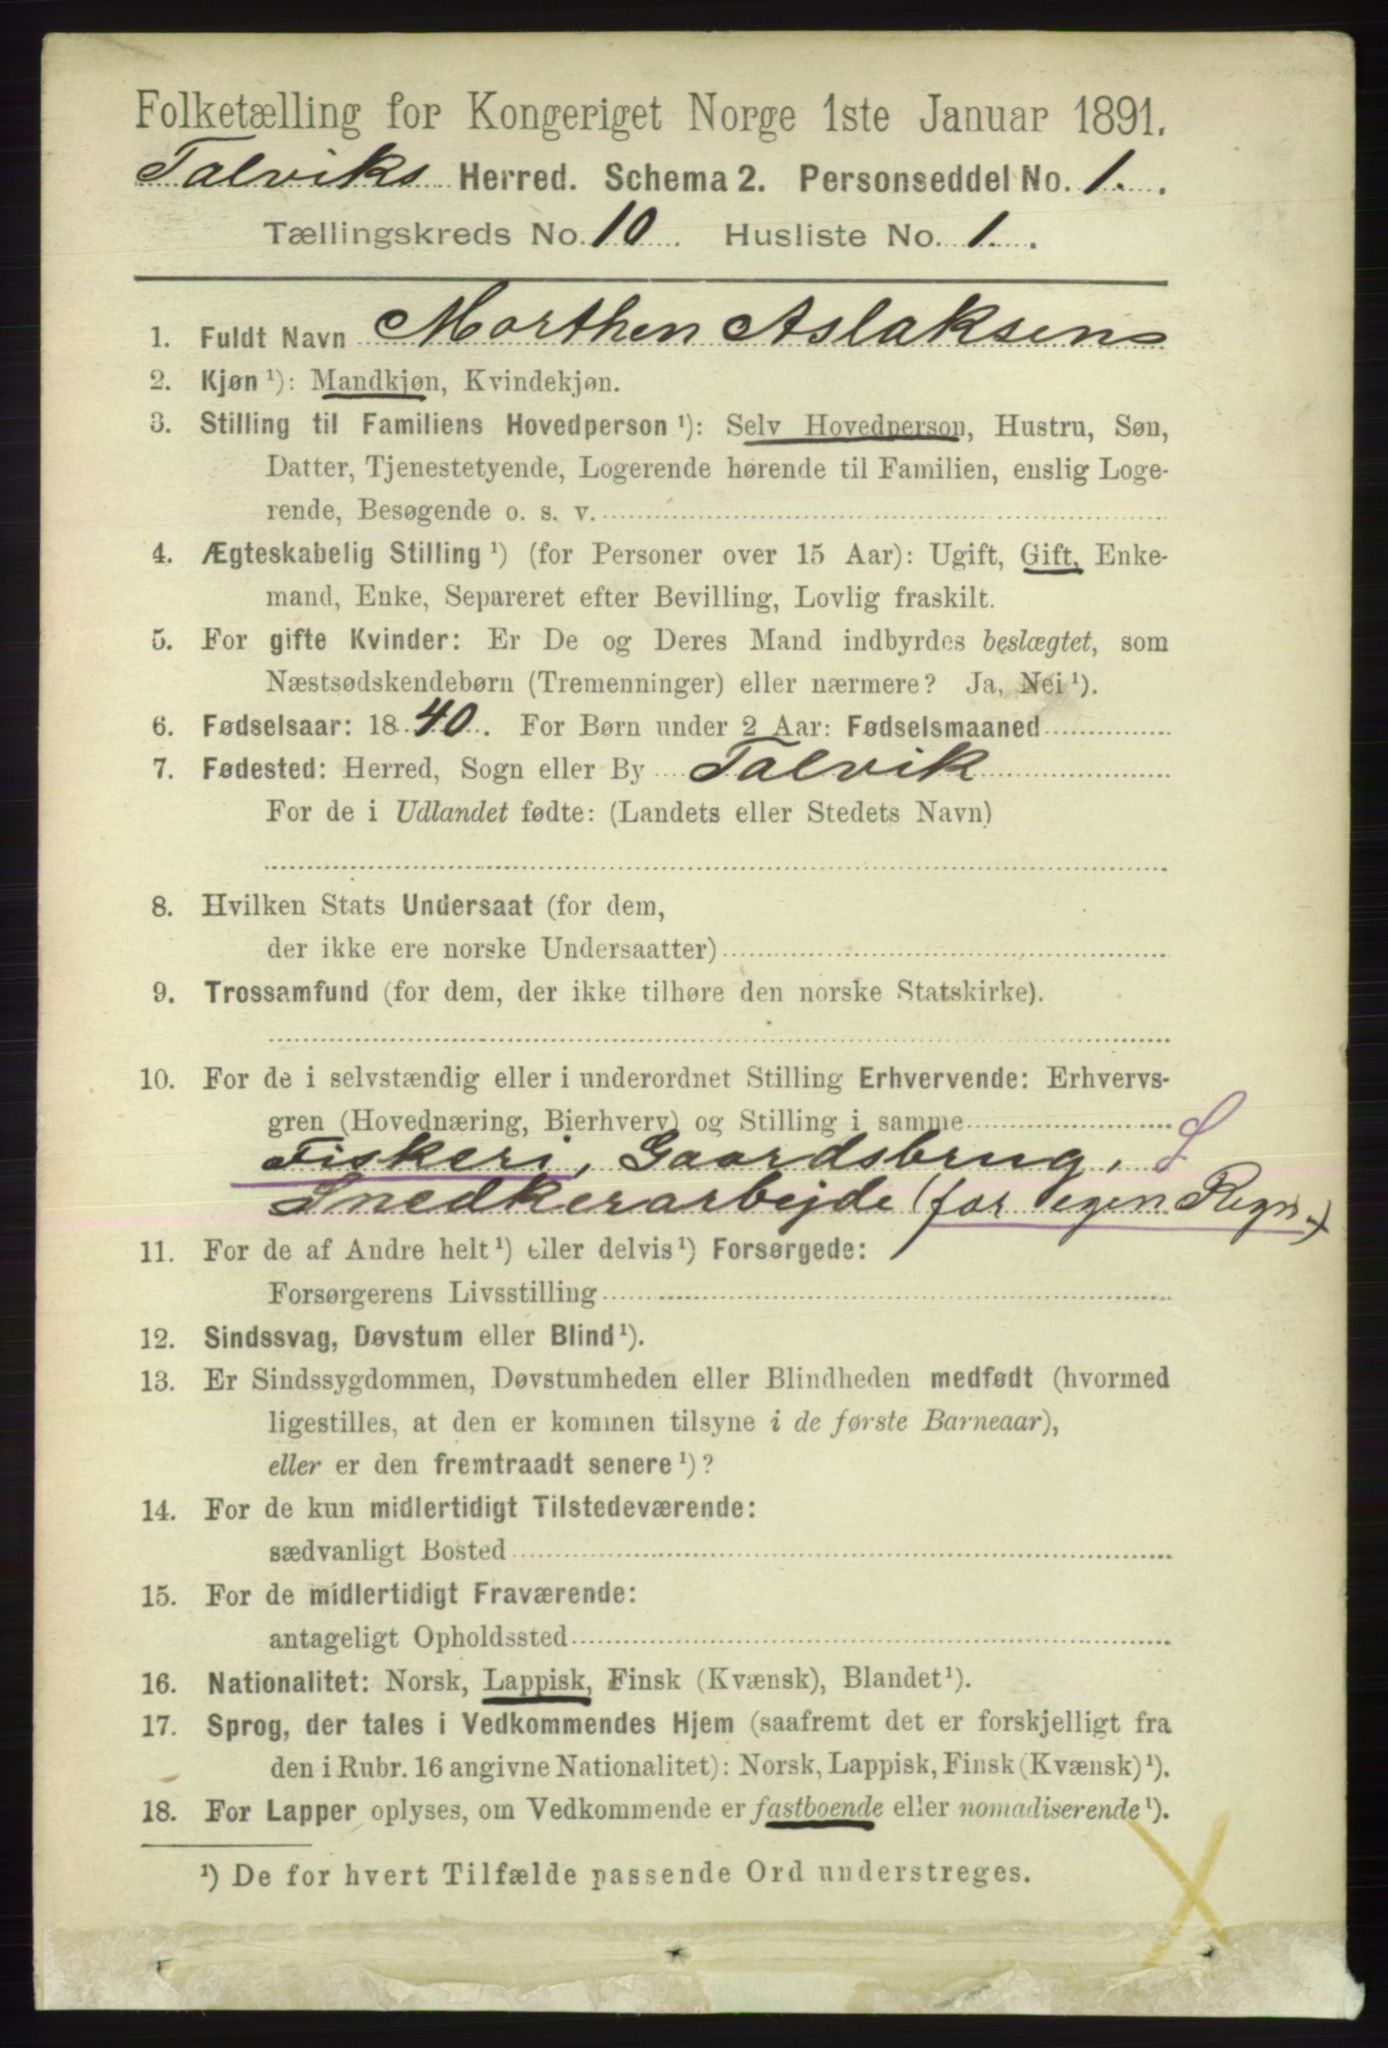 Folketælling for Kongeriget Norge 1ste Januar 1891.
Talviks Herred. Schema 2. Personseddel No. 1.
Tællingskreds No. 10. Husliste No. 1.
1. Fuldt Navn Morthen Aslaksen
2. Kjøn ¹): Mandkjøn, Kvindekjøn.
3. Stilling til Familiens Hovedperson ¹): Selv Hovedperson, Hustru, Søn,
Datter, Tjenestetyende, Logerende hørende til Familien, enslig Loge-
rende, Besøgende o. s. v.
4. Ægteskabelig Stilling ¹) (for Personer over 15 Aar): Ugift, Gift, Enke-
mand, Enke, Separeret efter Bevilling, Lovlig fraskilt.
5. For gifte Kvinder: Er De og Deres Mand indbyrdes beslægtet, som
Næstsødskendebørn (Tremenninger) eller nærmere? Ja, Nei ¹).
6. Fødselsaar: 1840. For Børn under 2 Aar: Fødselsmaaned
7. Fødested: Herred, Sogn eller By Talvik
For de i Udlandet fødte: (Landets eller Stedets Navn)
8. Hvilken Stats Undersaat (for dem,
der ikke ere norske Undersaatter)
9. Trossamfund (for dem, der ikke tilhøre den norske Statskirke).
10. For de i selvstændig eller i underordnet Stilling Erhvervende: Erhvervs-
gren (Hovednæring, Bierhverv) og Stilling i samme
Fiskeri, Gaardsbrug, S
Snedkerarbejde (for egen Regn.)
11. For de af Andre helt ¹) eller delvis ¹) Forsørgede:
Forsørgerens Livsstilling
12. Sindssvag, Døvstum eller Blind ¹).
13. Er Sindssygdommen, Døvstumheden eller Blindheden medfødt (hvormed
ligestilles, at den er kommen tilsyne i de første Barneaar),
eller er den fremtraadt senere ¹)?
14. For de kun midlertidigt Tilstedeværende:
sædvanligt Bosted
15. For de midlertidigt Fraværende:
antageligt Opholdssted
16. Nationalitet: Norsk, Lappisk, Finsk (Kvænsk), Blandet ¹).
17. Sprog, der tales i Vedkommendes Hjem (saafremt det er forskjelligt fra
den i Rubr. 16 angivne Nationalitet): Norsk, Lappisk, Finsk (Kvænsk) ¹).
18. For Lapper oplyses, om Vedkommende er fastboende eller nomadiserende ¹).
¹) De for hvert Tilfælde passende Ord understreges.